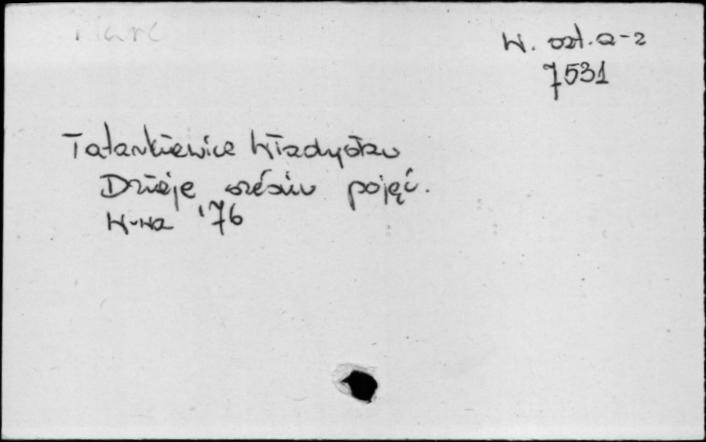 W. szt. a-z
7531
Tatarkiewicz Władysław
Dzieje sześciu pojęć.
W-wa '76